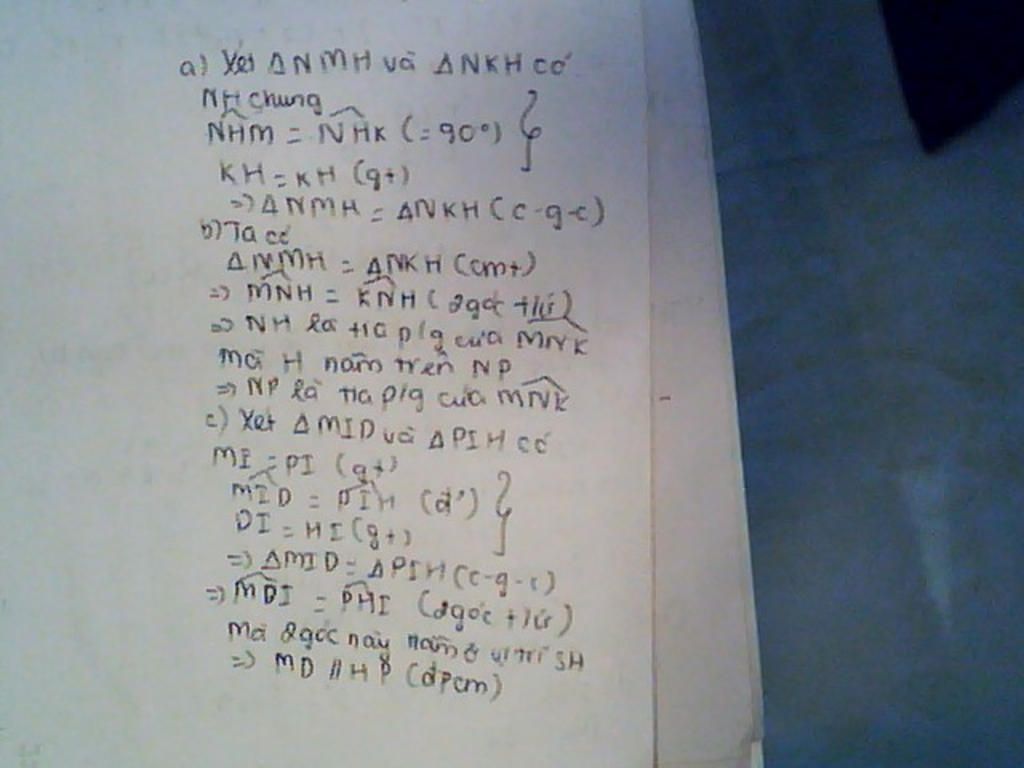 a) Xét ΔNMH và ΔNKH có
NH chung
NHM = NHK (=90°)
KH = KH (gt)
=> ΔNMH = ΔNKH (c-g-c)
b) Ta có
ΔNMH = ΔNKH (cmt)
=> MNH = KNH (2góc t/ứ)
=> NH là tia p/g của MNK
mà H nằm trên NP
=> NP là tia p/g của MNK
c) Xét ΔMID và ΔPIH có
MI = PI (gt)
MID = PIH (đ²)
DI = HI (gt)
=> ΔMID = ΔPIH (c-g-c)
=> MDI = PHI (2góc t/ứ)
Mà 2góc này nằm ở vị trí SH
=> MD // HP (đpcm)